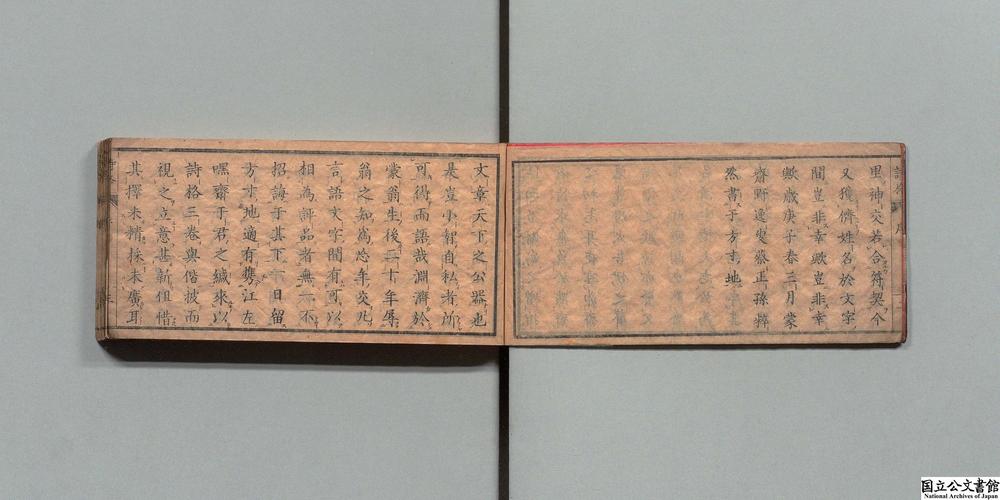 里神交若合符契今
又獲儕姓名於文字
間豈非幸歟豈非幸
歟歲庚子春三月蒙
齋野逸叟蔡正孫粹
然書于方寸地
文章天下之公器也
是豈小智自私者所
可得而語哉淵濟於
蒙翁生後二十年辱
翁之知爲忘年交凡
言語文字間有可以
相為評品者無一不
招誨于其下一日留
方寸地適有攜江左
嘿齋于君之緘來以
詩格三卷與偕披而
視之立意甚新但惜
其擇未精採未廣耳
国立公文書館
National Archives of Japan